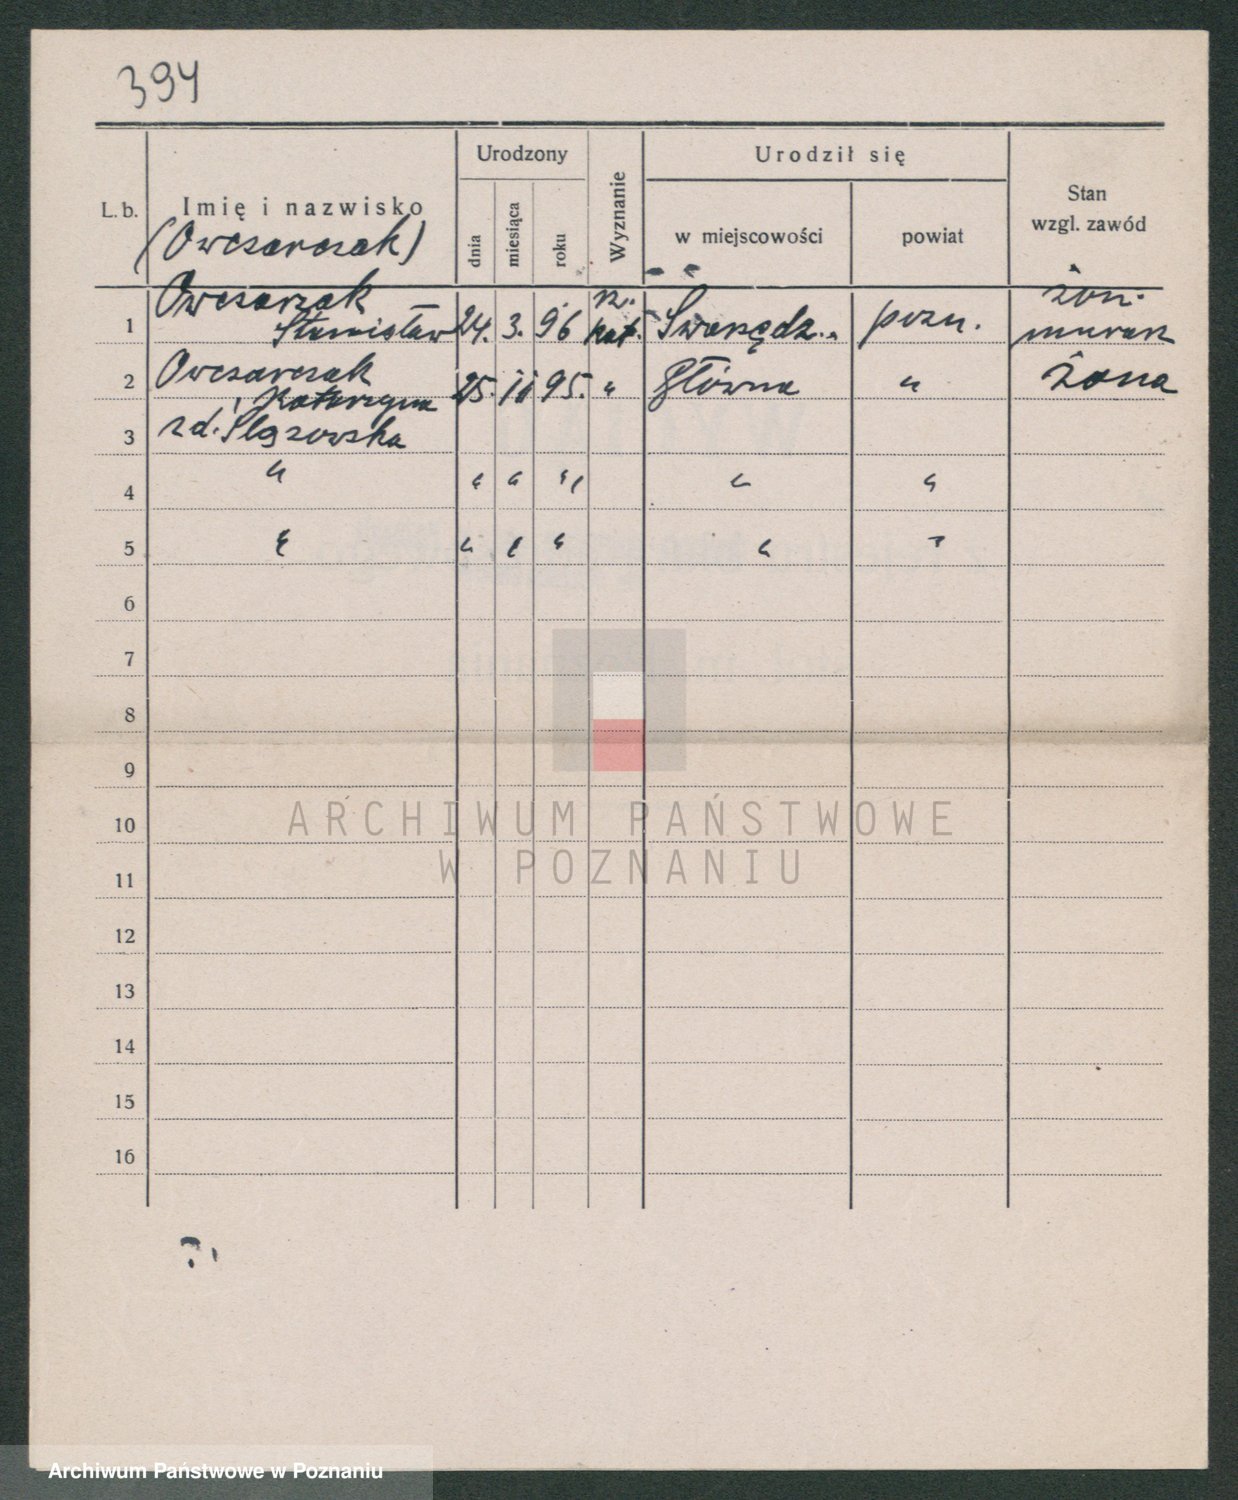 394
L. b.
Imię i nazwisko
(Owczarczak)
Urodzony
dnia
miesiąca
roku
Wyznanie
Urodził się
w miejscowości
powiat
Stan
wzgl. zawód
Owczarzak żon.
1 Stanisław 24. 3. 96 kat. Swarzędz pozn. murarz
2 Owczarczak 25. 11 95. " Główna " żona
Katarzyna
3 zd.
4 " " " " " "
5 " " " " " "
6
7
8
9
10
11
12
13
14
15
16
?
ARCHIWUM PAŃSTWOWE
W POZNANIU
Archiwum Państwowe w Poznaniu